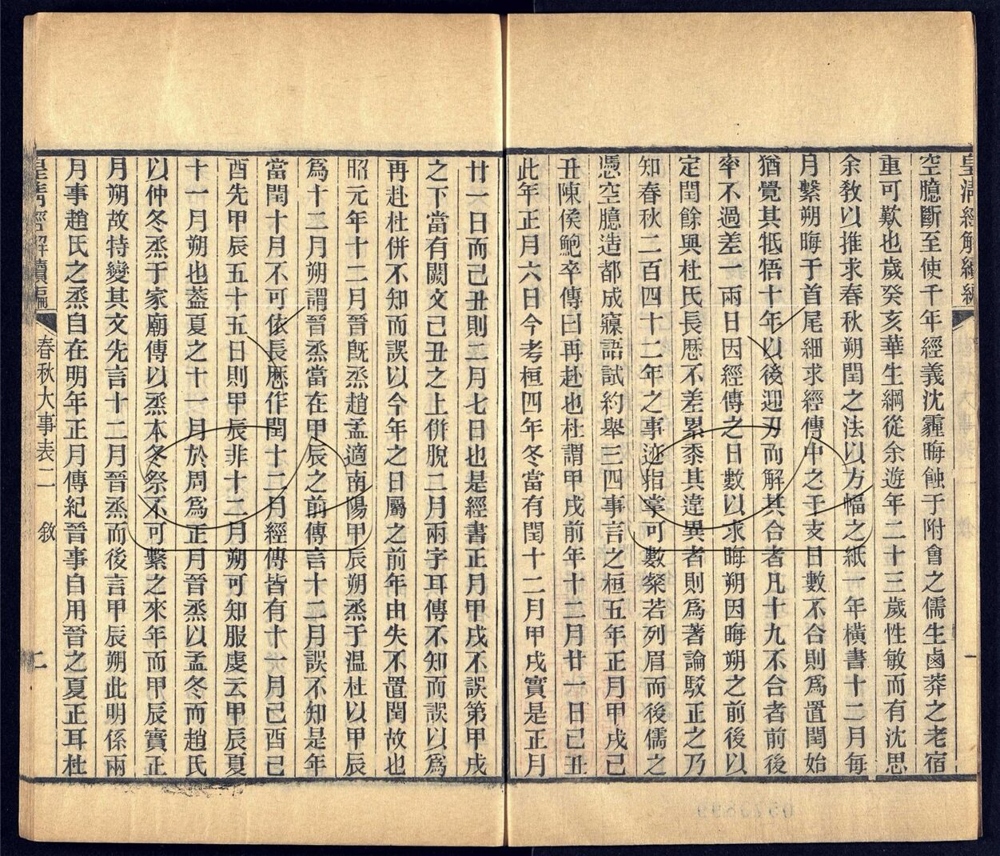 皇清經解續編
空臆斷至使千年經義沈霾晦蝕于附會之儒生鹵莽之老宿
重可歎也歲癸亥華生綱從余遊年二十三歲性敏而有沈思
余敎以推求春秋朔閏之法以方幅之紙一年橫書十二月每
月繫朔晦于首尾細求經傳中之干支日數不合則爲置閏始
猶覺其牴牾十年以後迎刃而解其合者凡十九不合者前後
率不過差一兩日因經傳之日數以求晦朔因晦朔之前後以
定閏餘與杜氏長厯不差累黍其違異者則爲著論駁正之乃
知春秋二百四十二年之事迹指掌可數粲若列眉而後儒之
憑空臆造都成寱語試約舉三四事言之桓五年正月甲戌己
丑陳侯鮑卒傳曰再赴也杜謂甲戌前年十二月廿一日己丑
此年正月六日今考桓四年冬當有閏十二月甲戌實是正月
廿一日而己丑則二月七日也是經書正月甲戌不誤第甲戌
之下當有闕文己丑之上併脫二月兩字耳傳不知而誤以爲
再赴杜併不知而誤以今年之日屬之前年由失不置閏故也
昭元年十二月晉旣烝趙孟適南陽甲辰朔烝于温杜以甲辰
爲十二月朔謂晉烝當在甲辰之前傳言十二月誤不知是年
當閏十月不可依長厯作閏十二月經傳皆有十一月己酉己
酉先甲辰五十五日則甲辰非十二月朔可知服虔云甲辰夏
十一月朔也蓋夏之十一月於周爲正月晉烝以孟冬而趙氏
以仲冬烝于家廟傳以烝本冬祭不可繫之來年而甲辰實正
月朔故特變其文先言十二月晉烝而後言甲辰朔此明係兩
月事趙氏之烝自在明年正月傳紀晉事自用晉之夏正耳杜
皇清經解續編 春秋大事表二 敘 二